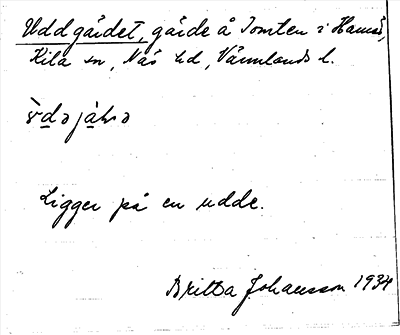 Uddgärdet, gärde å Tomten i Hamrė,
Kila sn, Näs hd, Värmlands l.
Ligger på en udde.
Britta Johansson 1934